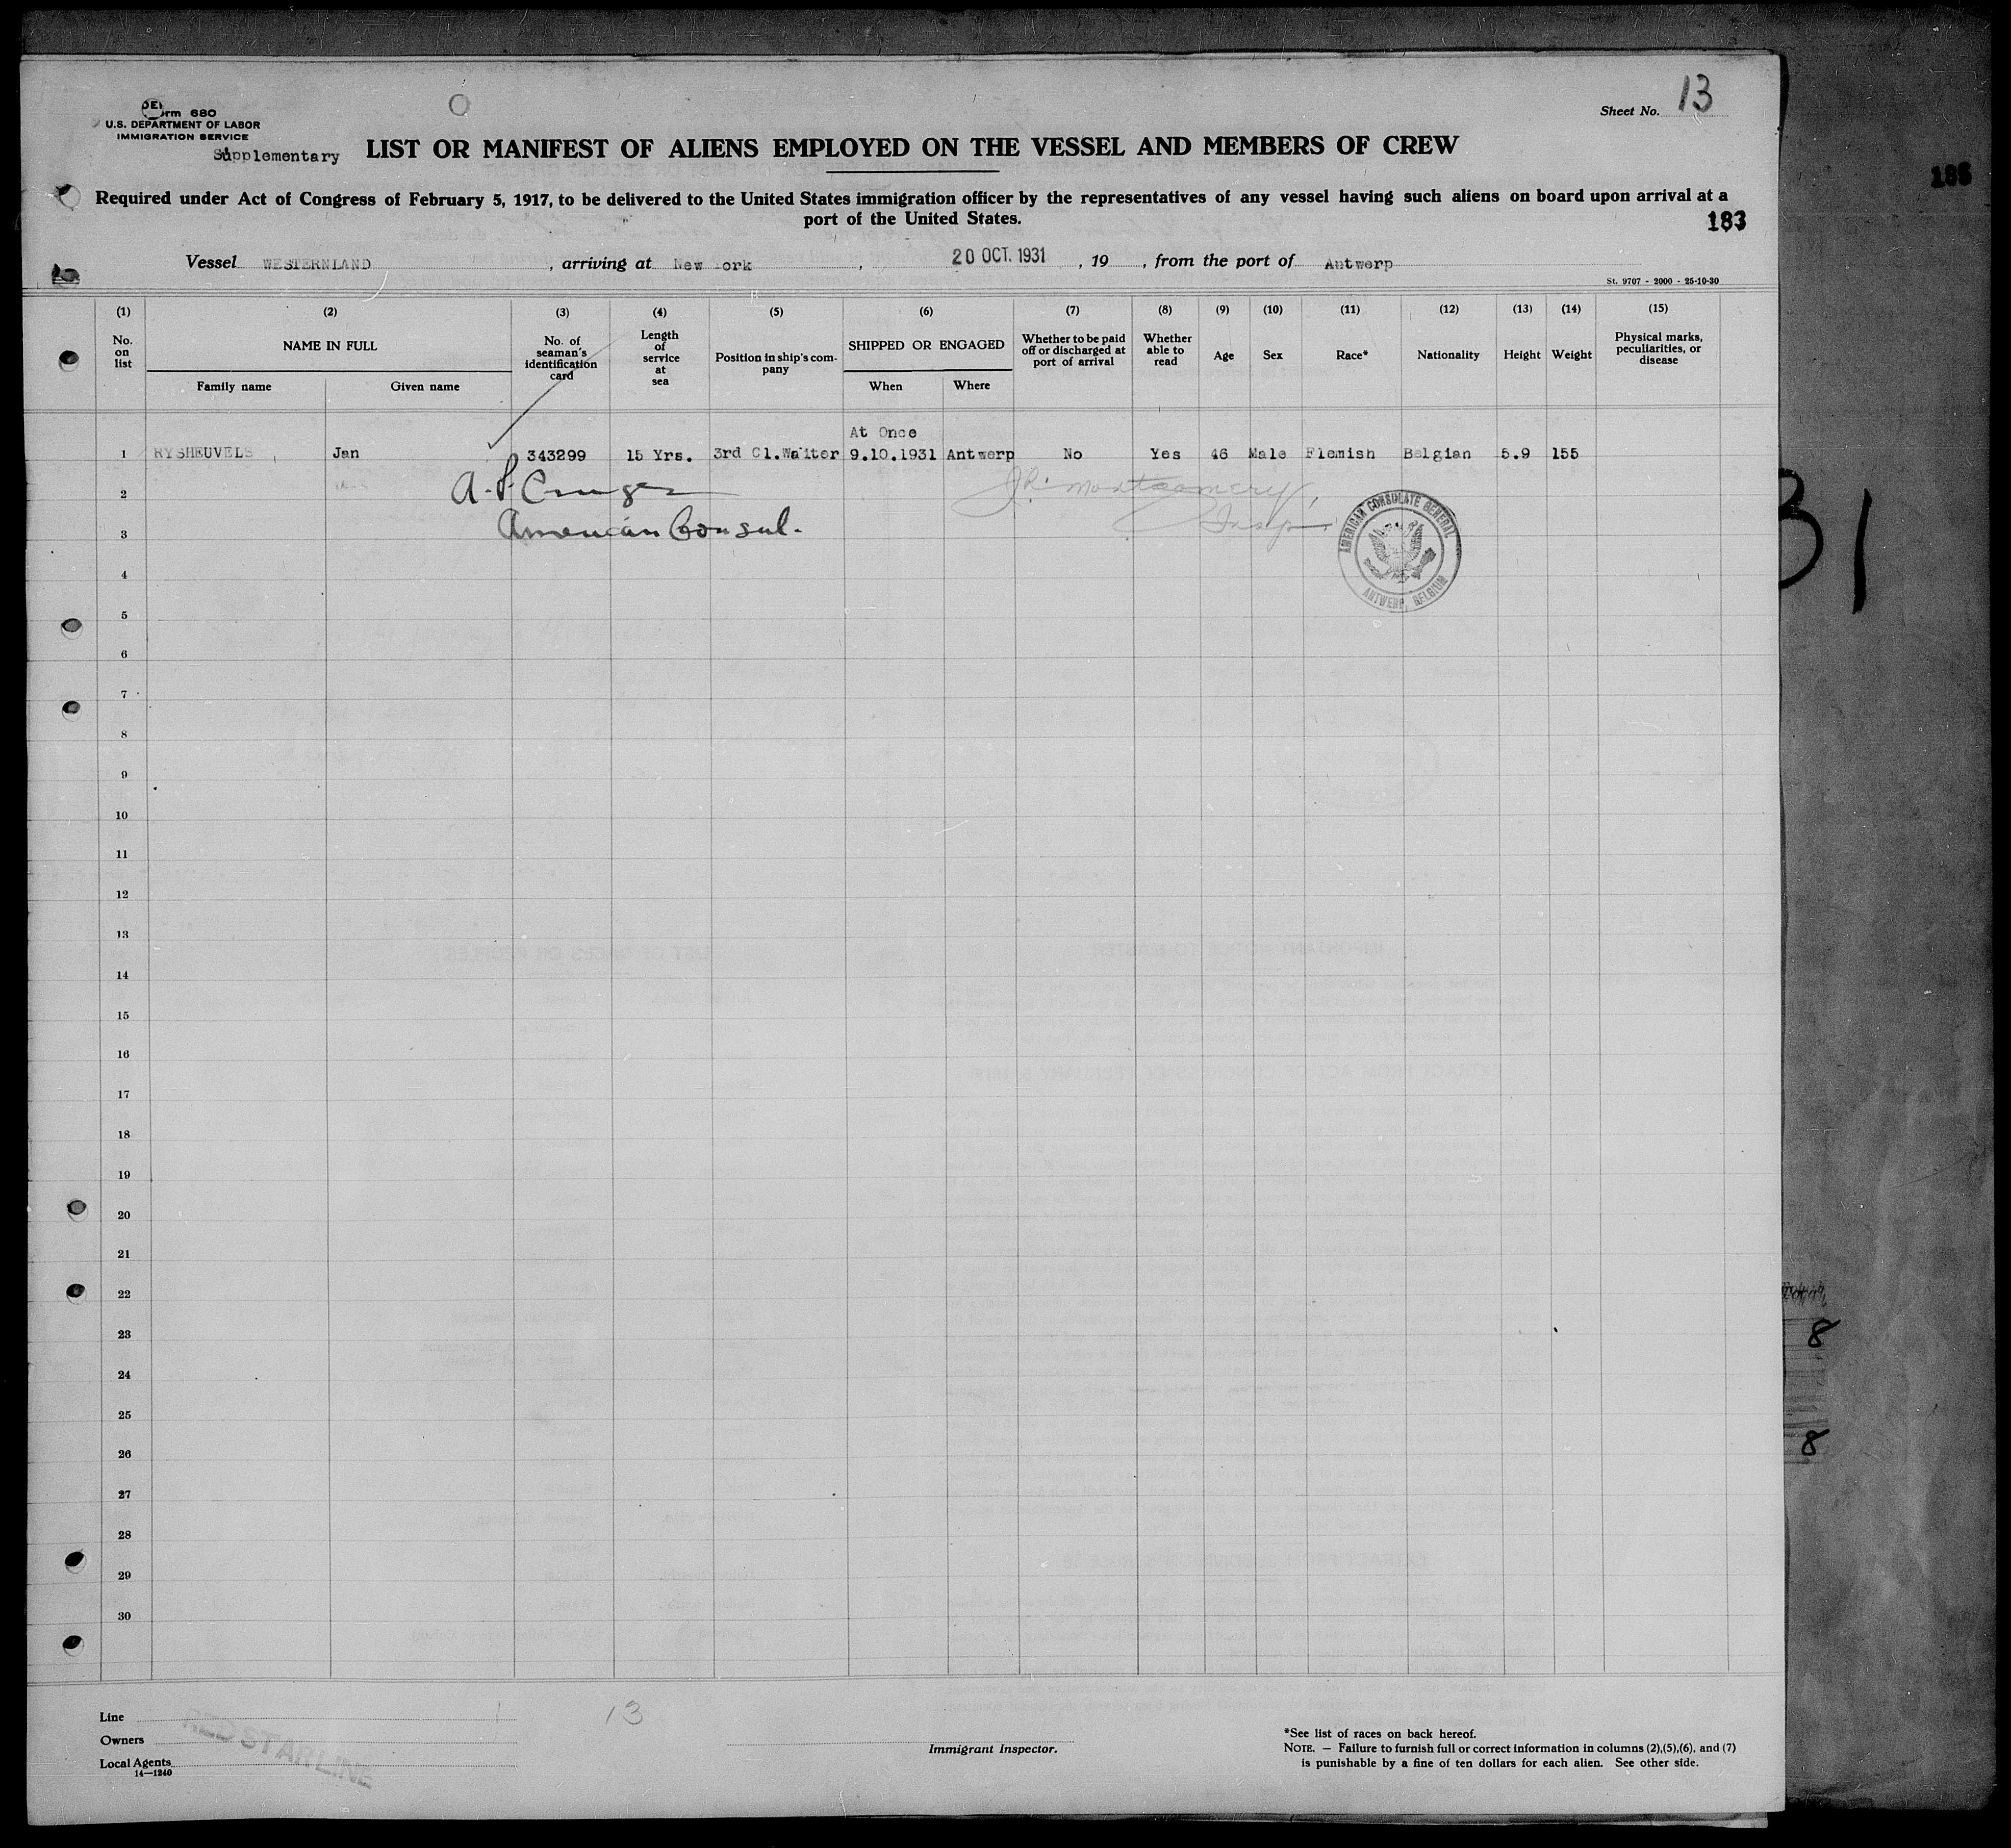 Form 680
U.S. DEPARTMENT OF LABOR
IMMIGRATION SERVICE
Sheet No. 13
Supplementary LIST OR MANIFEST OF ALIENS EMPLOYED ON THE VESSEL AND MEMBERS OF CREW
Required under Act of Congress of February 5, 1917, to be delivered to the United States immigration officer by the representatives of any vessel having such aliens on board upon arrival at a
port of the United States.
183
185
Vessel WESTERNLAND, arriving at New York, 20 OCT. 1931, 19 , from the port of Antwerp
St. 9707 - 2000 - 25-10-30
(1) (2) (3) (4) (5) (6) (7) (8) (9) (10) (11) (12) (13) (14) (15)
No. on list
NAME IN FULL
Family name Given name
No. of seaman's identification card
Length of service at sea
Position in ship's company
SHIPPED OR ENGAGED
When Where
Whether to be paid off or discharged at port of arrival
Whether able to read
Age
Sex
Race*
Nationality
Height
Weight
Physical marks, peculiarities, or disease
At Once
1 RYSHEUVELS Jan 343299 15 Yrs. 3rd Cl.Waiter 9.10.1931 Antwerp No Yes 46 Male Flemish Belgian 5.9 155
2 A. P. Cruger J.R. Montgomery,
3 American Consul. Insp.
AMERICAN CONSULATE GENERAL
ANTWERP, BELGIUM
31
4
5
6
7
8
9
10
11
12
13
14
15
16
17
18
19
20
21
22
23
24
25
26
27
28
29
30
8
8
Line
Owners
Local Agents
14—1240
RED STAR LINE
13
Immigrant Inspector.
*See list of races on back hereof.
NOTE. — Failure to furnish full or correct information in columns (2),(5),(6), and (7)
is punishable by a fine of ten dollars for each alien. See other side.